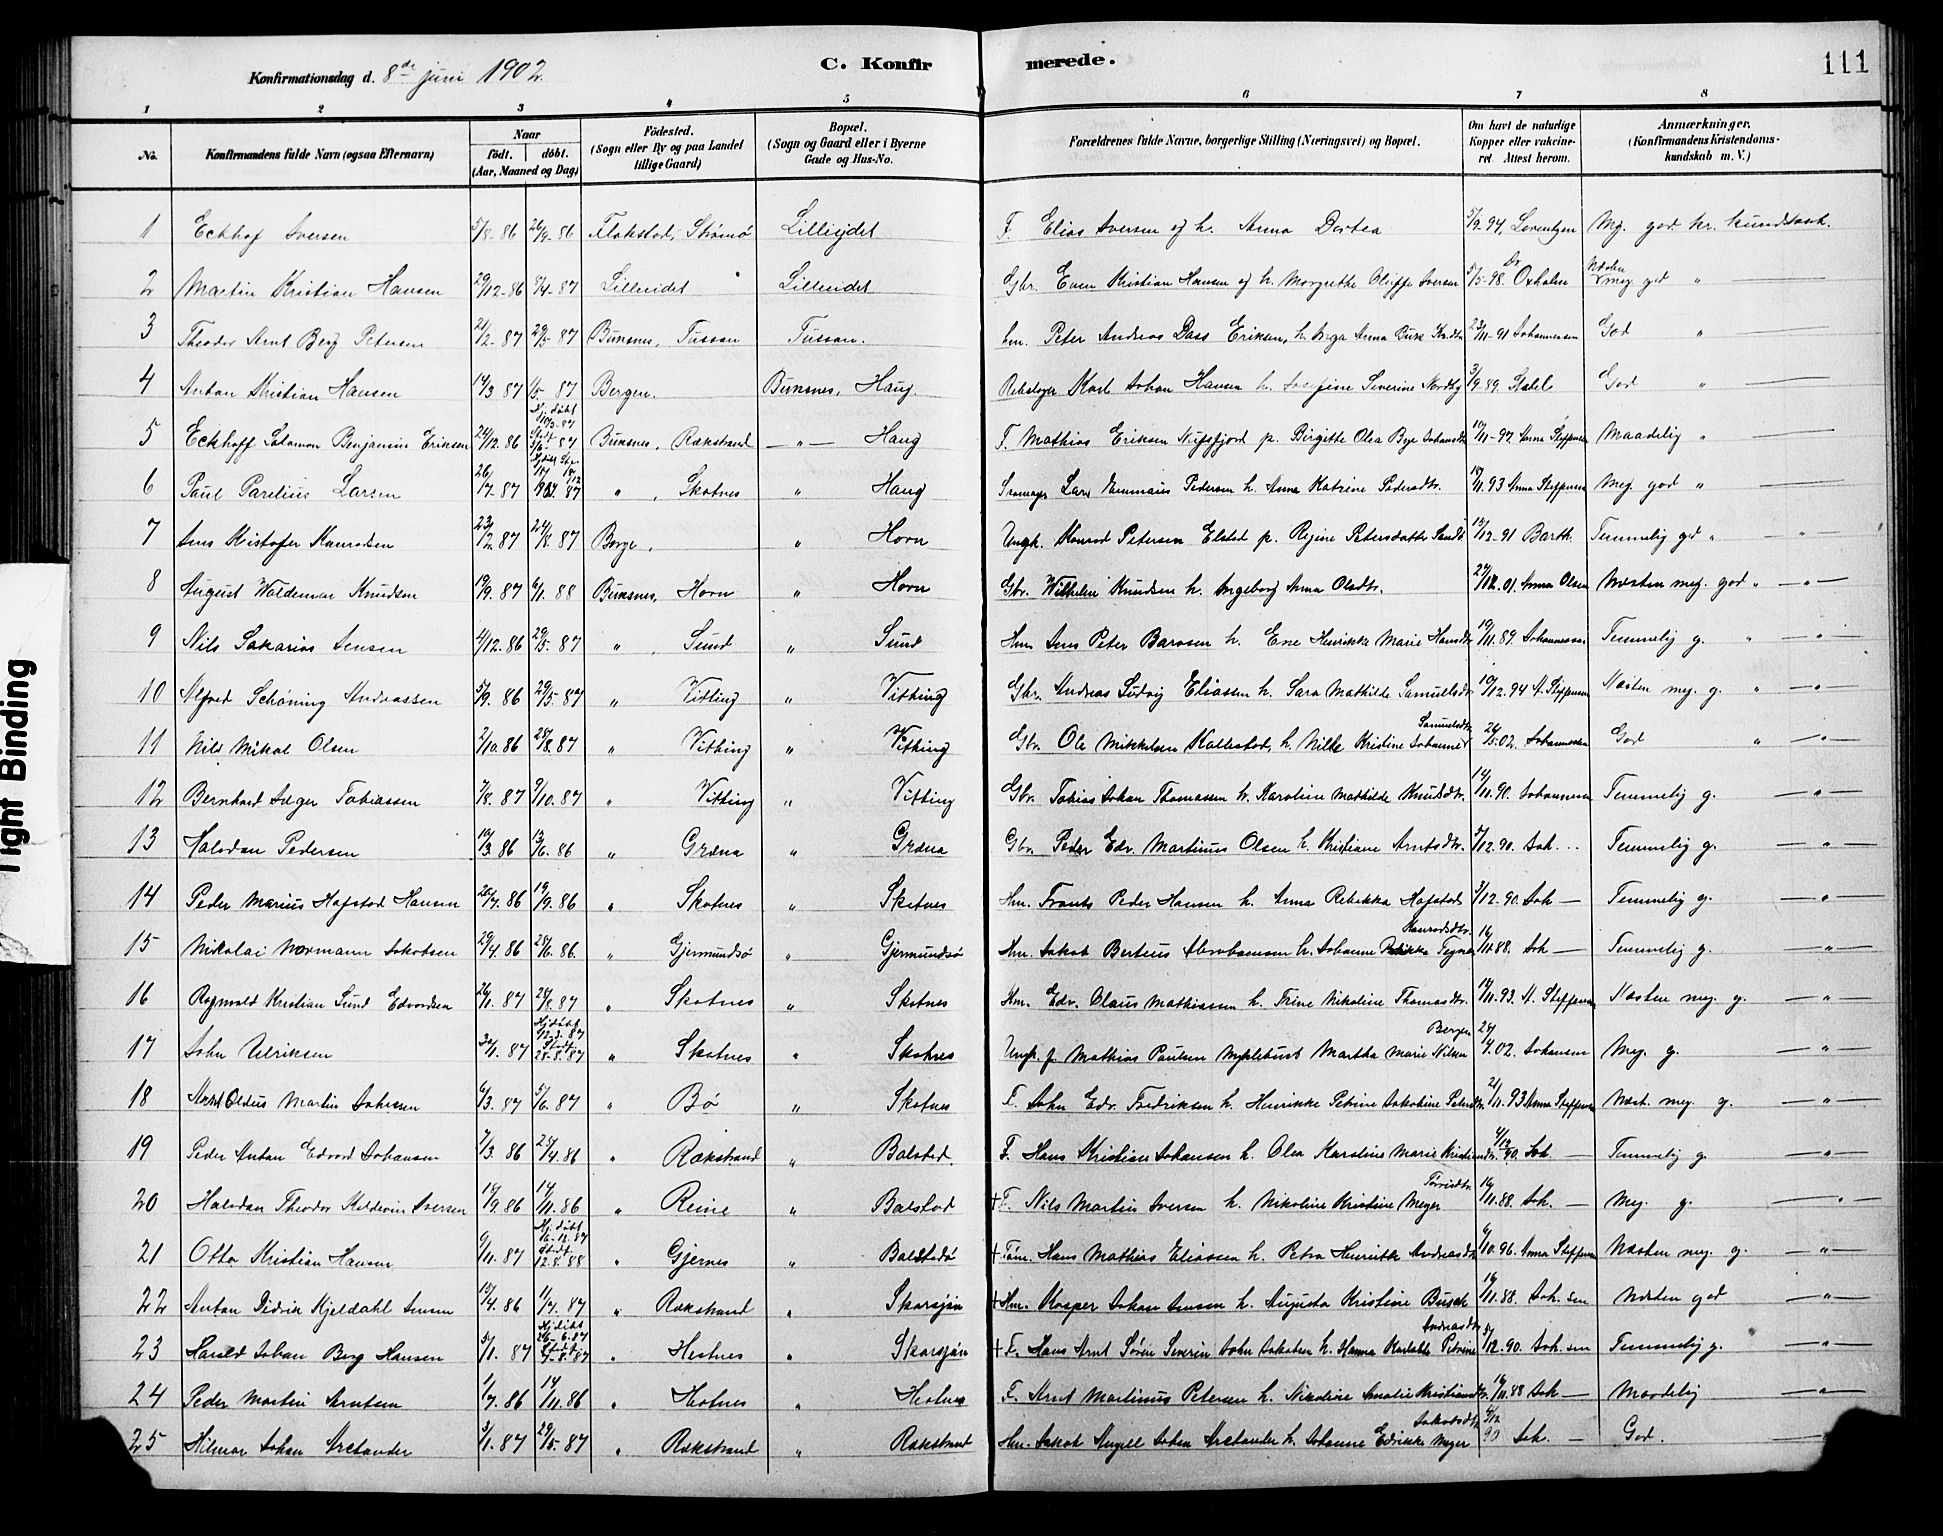 111
Konfirmationsdag d. 8de juni 1902
C. Konfirmerede.
1 2 3 4 5 6 7 8
No.
Konfirmandens fulde Navn (ogsaa Efternavn)
Naar
födt. döbt.
(Aar, Maaned og Dag)
Födested.
(Sogn eller By og paa Landet
tillige Gaard)
Bopæl.
(Sogn og Gaard eller i Byerne
Gade og Hus-No.
Forældrenes fulde Navne, borgerlige Stilling (Næringsvei) og Bopæl.
Om havt de naturlige
Kopper eller vakcine-
ret. Attest herom.
Anmærkninger.
(Konfirmandens Kristendoms-
kundskab m. V.)
1 Eckhof Iversen 5/8-86 26/9-86 Flakstad, Strømø Lilleidet F. Elias Iversen og h. Anna Dortea 5/9.94, Lorentzen Meg. god kr. kundskab.
2 Martin Kristian Hansen 29/12-86 /4-87 Lilleidet Lilleidet Gbr. Even Kristian Hansen og h. Margrethe Oliffe Iversen 5/5-98. Dr Oxholm Næsten meg. god "
3 Theodor Arnt Berg Petersen 21/2-87 29/5-87 Buksnes, Tussan Tussan. hm. Peter Andreas Dass Eriksen, h. Inga Anna 23/11-91 Johannessen God "
4 Anton Kristian Hansen 14/3 87 1/5 87 Bergen. Buksnes, Haug. Karl Johan Hansen h. Josefine Severine 3/9.89. Stabel God "
5 Eckhoff Salamon Benjamin Eriksen 24/12.86 Hj. døbt Stadf. 87 Buksnes, Rækstrand — " — Haug F. Mathias Eriksen Nufsfjord p. Birgitte Olea Bye Johansdt. 11-97 Anna Steffensen Maadelig "
6 Paul Parelius Larsen 26/7-87 87 " , Skotnes " Haug Lars Emmaus Pedersen h. Anna Katrine Pedersdtr. 11.93 Anna Steffensen Meg. god "
7 Jens Kristofer Konradsen 23/2.87 24/8.87 Borge, " Horn Ungk. Konrad Petersen Elstad p. Regine Petersdatter 15/12.91 Barth. Temmelig god " — " —
8 August Waldemar Knudsen 19/9.87 6/1.88 Buksnes, Horn " Horn Gbr. Wilhelm Knudsen h. Ingeborg Anna Olsdtr. 27/12.01. Anna Olsen Næsten meg. god " — " —
9 Nils Sakarias Jensen 4/12.86 29/5.87 " , Sund " Sund Hm. Jens Peter Barosen h. Ene Henrikke Marie Hansdtr. 19/11.89 Johannessen Temmelig g. " — " —
10 Alfred Schøning Andreassen 5/9.86 29/5.87 " Vitting " Vitting Gbr. Andreas Ludvig Eliassen h. Sara Mathilde Samuelsdtr. 19/12.94 A. Steffensen Næsten meg. g. " — " —
11 Nils Mikal Olsen 2/10.86 28/8.87 " Vitting " Vitting Gbr. Ole Mikkelsen Kallestad, h. Nilke Kristine Johanne Samuelsdtr. 26/5.02. Johannessen God " — " —
12 Bernhard Jæger Tobiassen 7/8.87 9/10.87 " Vitting " Vitting Gbr. Tobias Johan Thomassen h. Karoline Mathilde Knutsdtr. 14/11.90. Johannessen Temmelig g. — " —
13 Halvdan Pedersen 10/3 86 13/6.86 " Græna " Græna Gbr. Peder Edv. Martinus Olsen h. Kristiane Arntsdtr. 5/12.90. Joh. Temmelig g. — " —
14 Peder Marius Hafstad Hansen 20/7.86 19/9.86 " Skotnes " Skotnes Hm. Frants Peder Hansen h. Anna Rebekka Hafstad 3/12.90. Joh — Temmelig g. — " —
15 Nikolai Normann Jakobsen 29/4.86 /6.86. " Gjermundsø " Gjermundsø Hm. Jakob Berteus Abrahamsen h. Johanne Konradsdtr. 16/11.88. Joh — Temmelig g. — " —
16 Ragnvald Kristian Sund Edvardsen 26/1.87 28/8.87 " Skotnes " Skotnes Hm. Edv. Claus Mathiassen h. Trine Nikoline Thomasdtr. 14/11.93. A. Steffensen Næsten meg. g. — " —
17 John Ulriksen 30/1.87 Hj.døbt 12.3.87 Stadf. 28-8.87 " Skotnes " Skotnes Ungk. f. Mathias Paulsen Myklebust Martha Marie Nilsen Bergen 24/4.02. Johansen Meg. g. — " —
18 Arnt Oldus Martin Johnsen 6/3.87 5/6.87 " Bø " Skotnes F. John Edv. Fredriksen h. Henrikke Petrine Jakobine Petersdtr. 21/11.93 Anna Steffensen Næst. meg. g. — " —
19 Peder Antan Edvard Johansen 7/3.86 25/4.86 " Rækstrand " Balstad. F. Hans Kristian Johansen h. Olea Karoline Marie Kristiansdtr. 4/12.90. Joh. — Temmelig g. — " —
20 Halvdan Theodor Kaldevin Iversen 18/9.86 14/11.86 " Reine " Balstad † F. Nils Martin Iversen h. Nikoline Kristine Meyer 16/11.88. Joh. — Meg. g. — " —
21 Otto Kristian Hansen 9/11.87 Hj. døbt 16-12.87 Stadf. 12.8.88 " Gjernes " Balstadø † Tøm. Hans Mathias Eliassen h. Petra Henrikke Andreasdtr. 6/10.96. Anna Steffensen Næsten meg. g. — " —
22 Antan Didrik Kjeldahl Jensen 18/4.86 11/4.87 " Rækstrand " Skarsjøn † Hm. Kasper Johan Jensen h. Augusta Kristine Busch 16/11.88. Joh. sen Næsten god — " —
23 Harald Johan Berg Hansen 5/1.87 Hj.døbt 26-6.87 Stadf. 7-8.87 " Hestnes " Skarsjøn † F. Hans Arnt Søren Severin John Jakobsen h. Hanna Karlotte Petrine Andreasdtr. 5/12.90. Joh. sen Temmelig g. — " —
24 Peder Martin Arntsen 1/7.86 14/11.86 " Hestnes " Hestnes F. Arnt Martinus Petersen h. Nikoline Amalie Kristiansdtr. 16/11.88 Joh — Maadelig — " —
25 Hilmar Johan Arctander 3/1.87 29/5.87 " Rækstrand " Rækstrand Hm. Jakob Angell Johan Arctander h. Johanne Edrikke Meyer Jakobsdtr. 4/12 90 Joh. — God.
Tight Binding